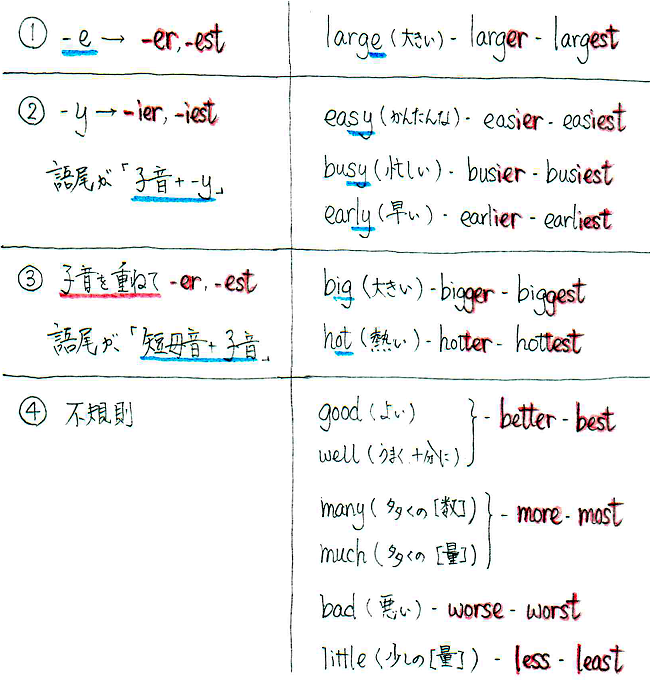 ① -e → -er, -est
large (大きい) - larger - largest
② -y → -ier, -iest
語尾が「子音+-y」
easy (かんたんな) - easier - easiest
busy (忙しい) - busier - busiest
early (早い) - earlier - earliest
③ 子音を重ねて -er, -est
語尾が、「短母音+子音」
big (大きい) - bigger - biggest
hot (熱い) - hotter - hottest
④ 不規則
good (よい)
well (うまく 十分に)
- better - best
many (多くの[数])
much (多くの[量])
- more - most
bad (悪い) - worse - worst
little (少しの[量]) - less - least